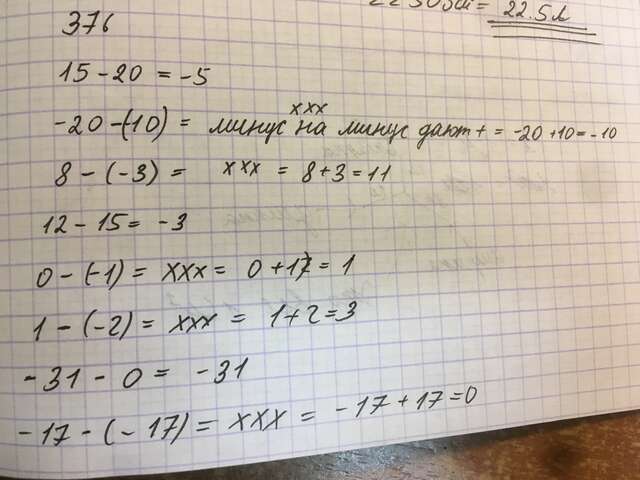 = 22.5л
376
15 - 20 = -5
xxx
-20 - (10) = минус на минус дают + = -20 + 10 = -10
8 - (-3) = xxx = 8 + 3 = 11
12 - 15 = -3
0 - (-1) = xxx = 0 + 17 = 1
1 - (-2) = xxx = 1 + 2 = 3
-31 - 0 = -31
-17 - (-17) = xxx = -17 + 17 = 0